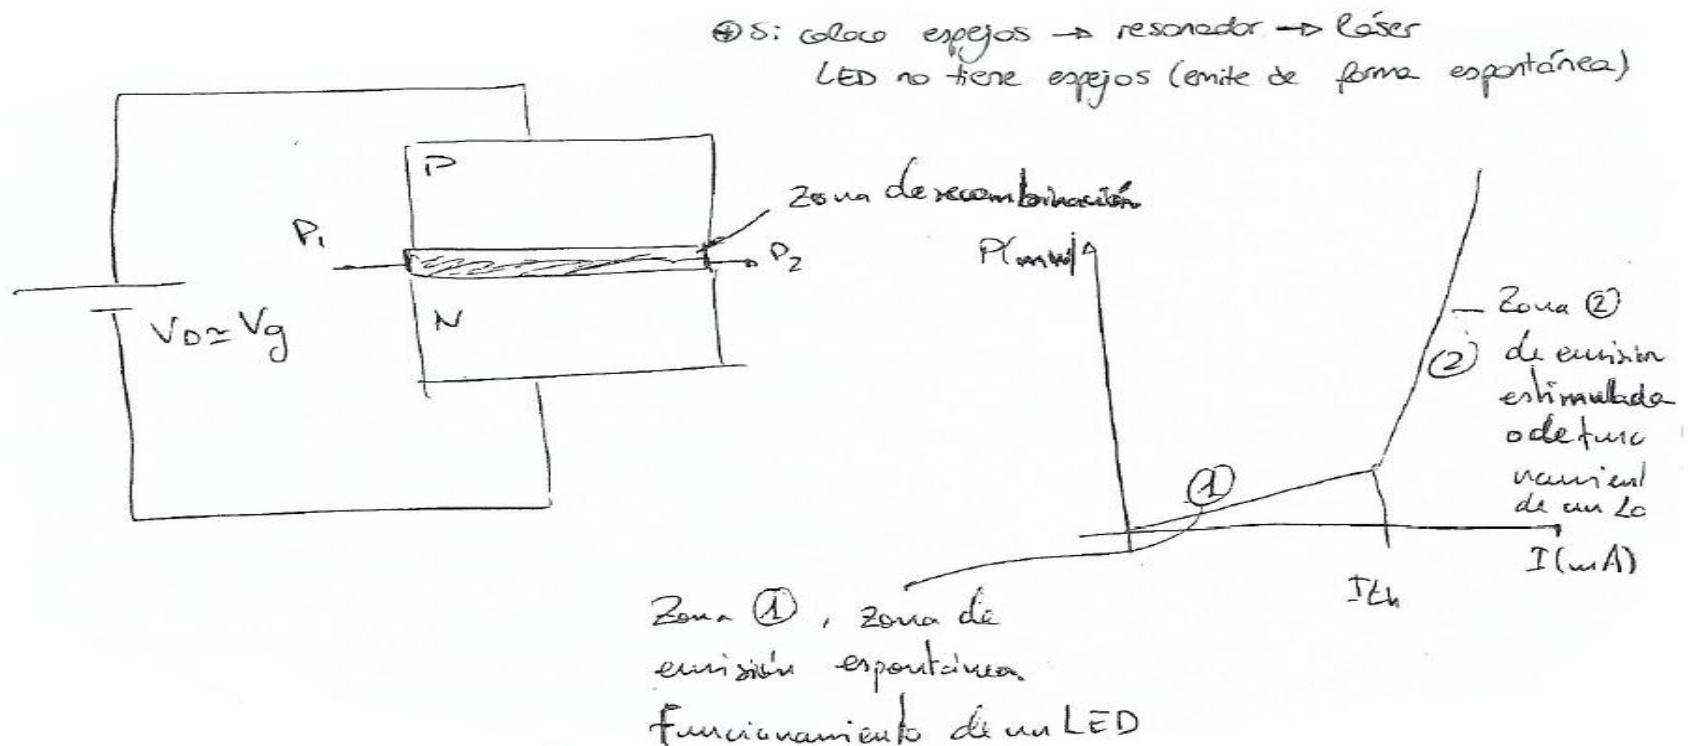 ⊕ Si coloco espejos → resonador → láser
LED no tiene espejos (emite de forma espontánea)
P
Zona de recombinación
P1
P2
N
VD ≃ Vg
P(mW)
Zona ②
② de emisión
estimulada
o de func
namient
de un LD
①
I(mA)
Ith
Zona ①, zona de
emisión espontánea.
Funcionamiento de un LED